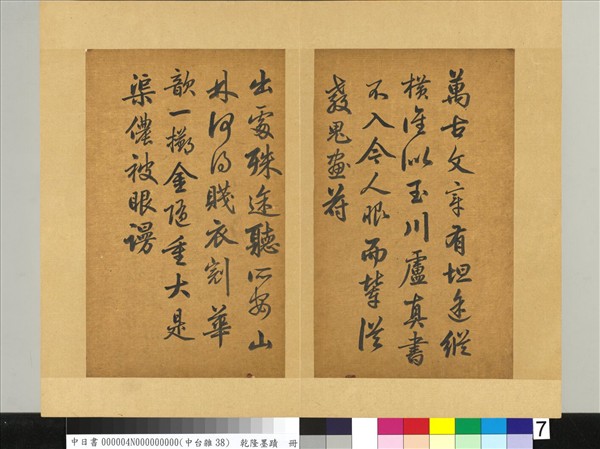 萬古文章有坦途縱
橫誰似玉川盧真書
不入今人眼兒輩從
教鬼畫符
出處殊途聽所安山
林何得賤衣冠華
歆一擲金隨重大是
渠儂被眼謾
中日書 000004N000000000(中台雜38) 乾隆墨蹟 冊
7